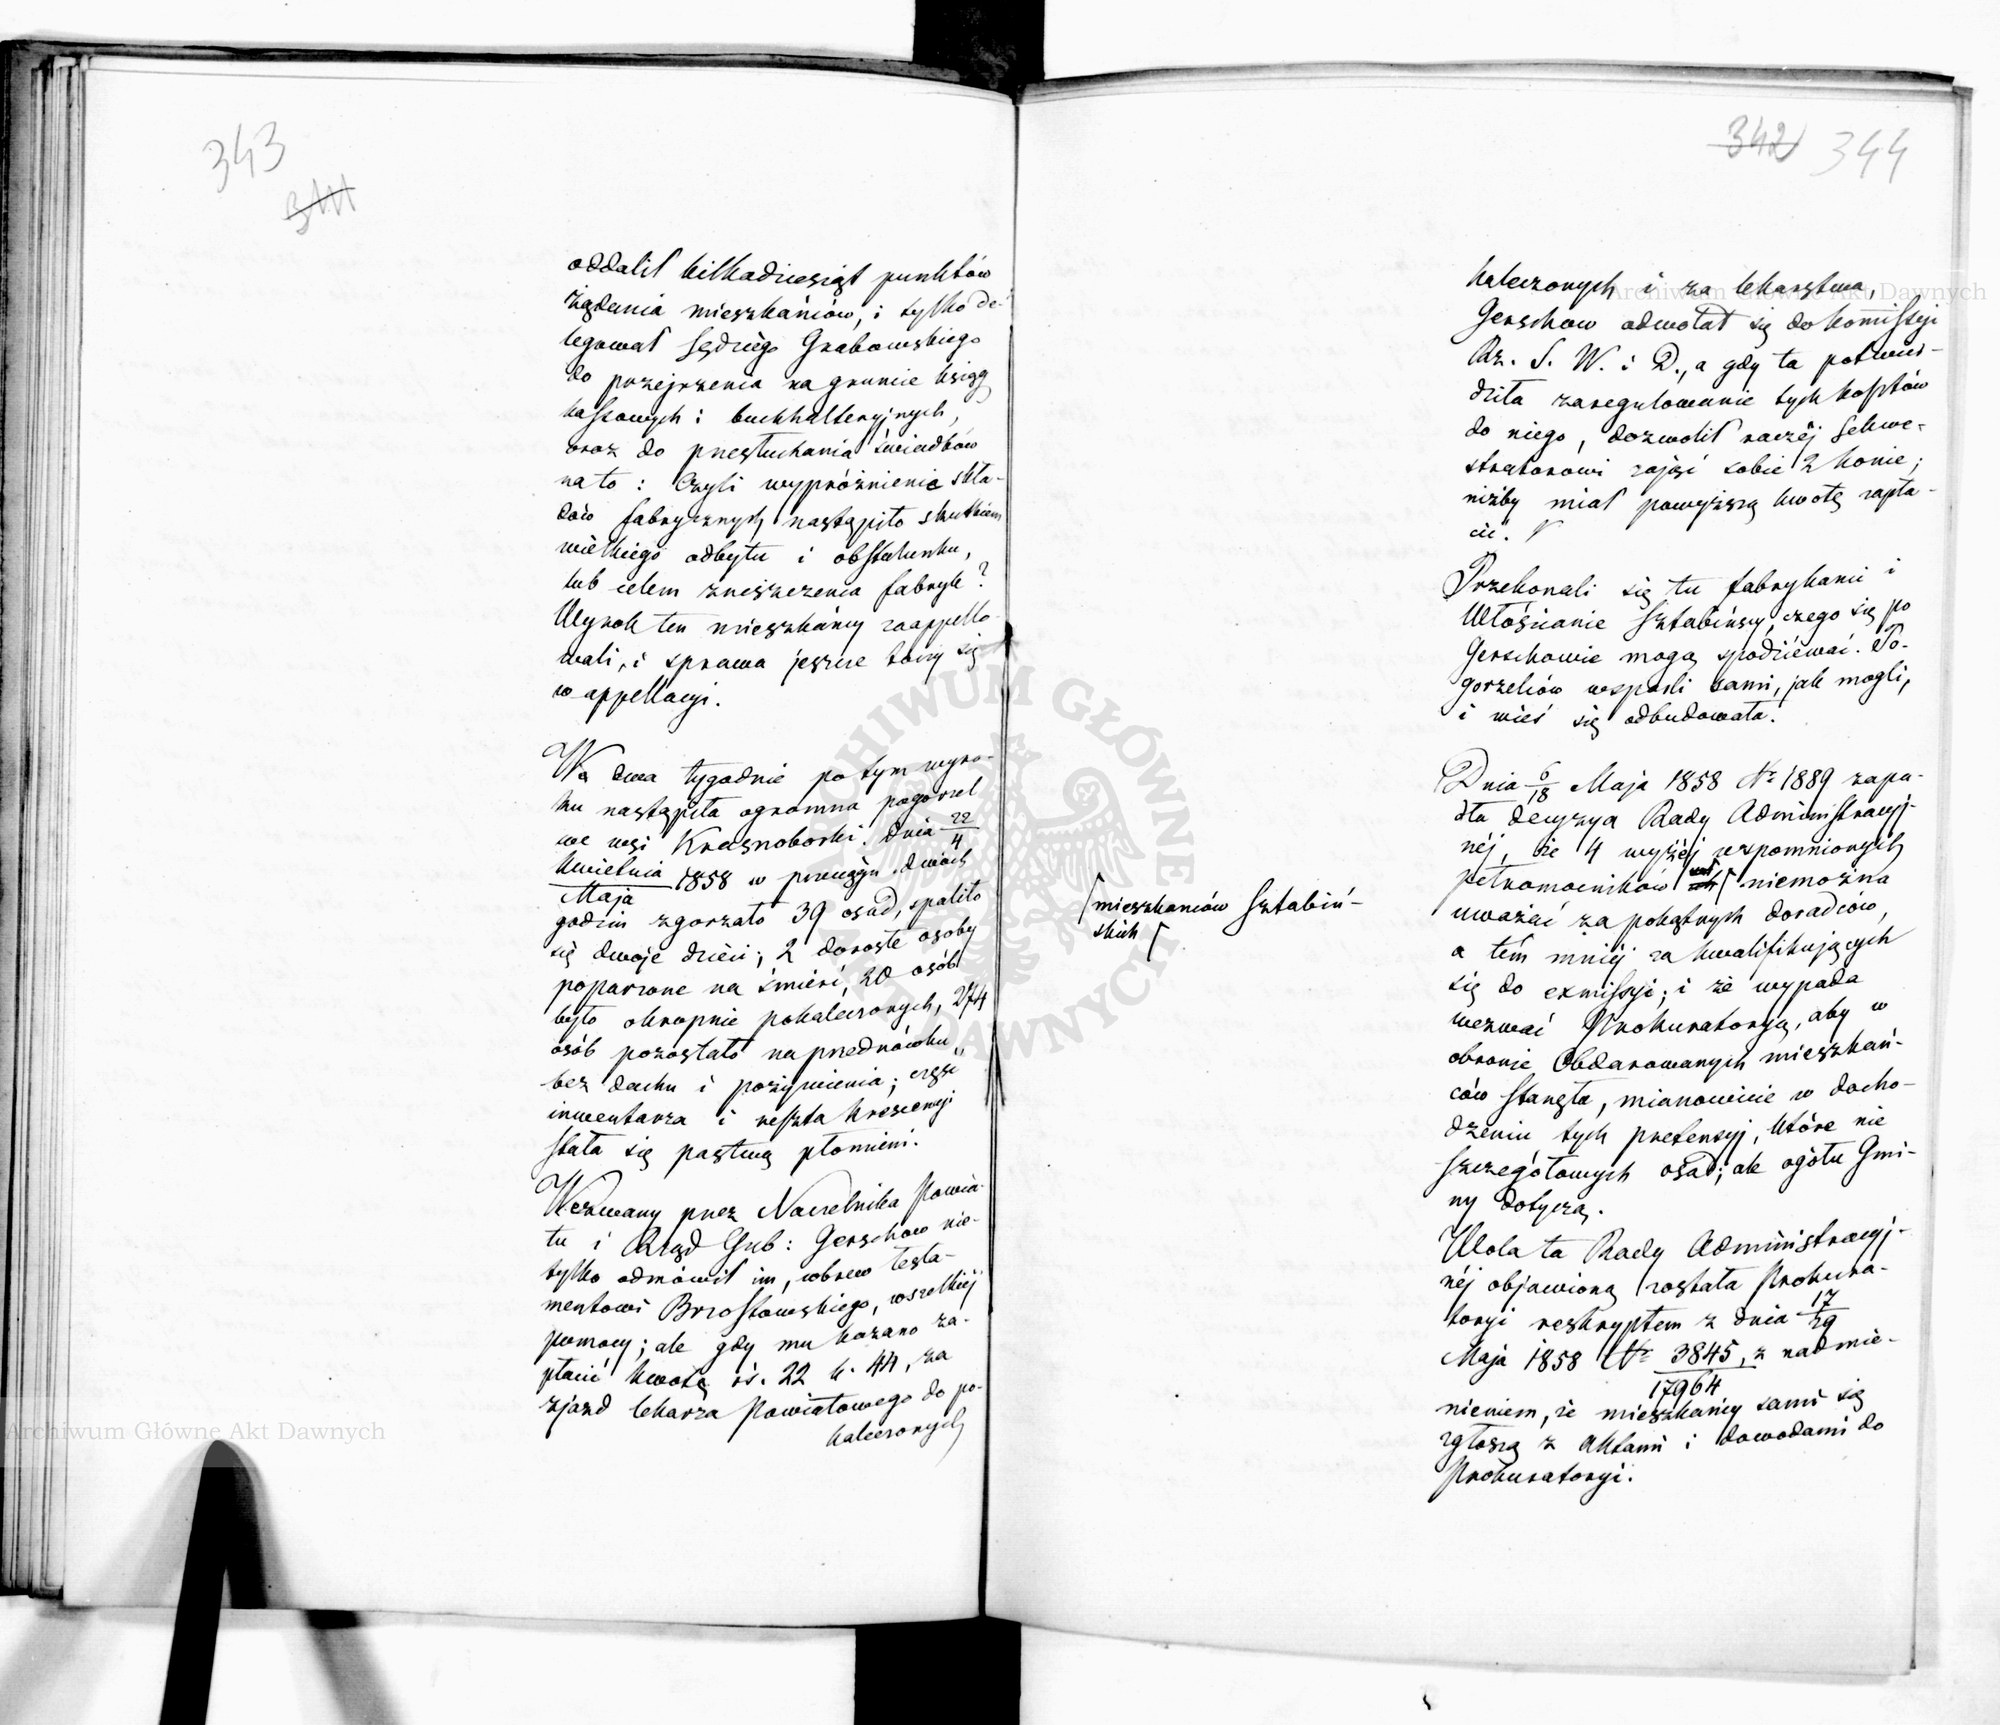 343
341
oddalił kilkadziesiąt punktów
żądania mieszkańców, i tylko de-
legował Sędziego Grabowskiego
do przejrzenia na gruncie ksiąg
kassowych i buchhalteryjnych,
oraz do przesłuchania świadków
na to: Czyli wypróżnienie skła-
dów fabrycznych nastąpiło skutkiem
wielkiego odbytu i obstalunku,
lub celem zniszczenia fabryk?
Wyrok ten mieszkańcy zaappello-
wali, i sprawa jeszcze toczy się
w appellacyi.
We dwa tygodnie po tym wyro-
ku nastąpiła ogromna pogorzel
we wsi Krasnoborki. Dnia 22/4
Kwietnia/Maja 1858 w przeciągu dwóch
godzin zgorzało 39 osad, spaliło
się dwoje dzieci; 2 dorosłe osoby
poparzone na śmierć, 20 osób
było okropnie pokaleczonych, 274
osób pozostało na przednówku
bez dachu i pożywienia; część
inwentarza i reszta krescencyi
stała się pastwą płomieni.
Wezwany przez Naczelnika Powia-
tu i Rząd Gub: Gerschow nie-
tylko odmówił im, wbrew testa-
mentowi Brzostowskiego, wszelkiéj
pomocy; ale gdy mu kazano za-
płacić kwotę rs. 22 k. 44, za
zjazd lekarza Powiatowego do po-
kaleczonych
342 344
kaleczonych i za lekarstwa,
Gerschow odwołał się do Komissyi
Rz. S. W. i D., a gdy ta potwier-
dziła zaregulowanie tych kosztów
do niego, dozwolił raczéj Sekwe-
stratorowi zająć sobie 2 konie;
niżby miał powyższą kwotę zapła-
cić.
Przekonali się tu fabrykanci i
Włościanie Sztabińscy, czego się po
Gerschowie mogą spodziéwać. Po-
gorzelców wsparli sami, jak mogli,
i wieś się odbudowała.
Dnia 6/18 Maja 1858 Nr 1889 zapa-
dła decyzya Rady Administracyj-
néj, że 4 wyżéj wspomnionych
pełnomocników niemożna
mieszkańców Sztabiń-
skich
uważać za pokątnych doradców,
a tém mniéj za kwalifikujących
się do exmissyi; i że wypada
wezwać Prokuratoryą, aby w
obronie Obdarowanych mieszkań-
ców stanęła, mianowicie w docho-
dzeniu tych pretensyj, które nie
szczegółowych osad; ale ogółu Gmi-
ny dotyczą.
Wola ta Rady Administracyj-
néj objawioną została Prokura-
toryi reskryptem z dnia 17/29
Maja 1858 Nr 3845/17964, z nadmie-
nieniem, że mieszkańcy sami się
zgłoszą z Aktami i dowodami do
Prokuratoryi.
Archiwum Główne Akt Dawnych
Archiwum Główne Akt Dawnych
ARCHIWUM GŁÓWNE AKT DAWNYCH